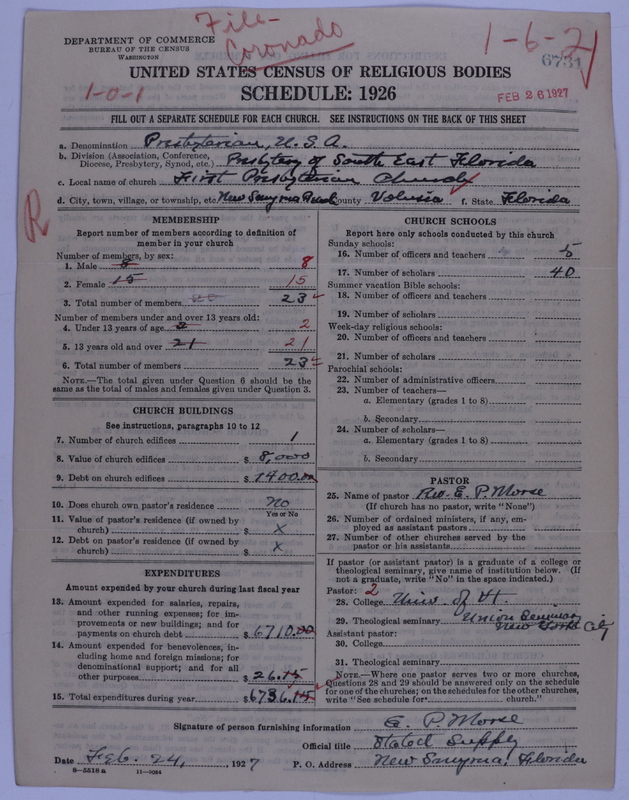 File-
Coronado
1-6-2
6731
DEPARTMENT OF COMMERCE
BUREAU OF THE CENSUS
WASHINGTON
UNITED STATES CENSUS OF RELIGIOUS BODIES
1-0-1
SCHEDULE: 1926
FEB 26 1927
FILL OUT A SEPARATE SCHEDULE FOR EACH CHURCH. SEE INSTRUCTIONS ON THE BACK OF THIS SHEET
a. Denomination Presbyterian, U.S.A.
b. Division (Association, Conference, Diocese, Presbytery, Synod, etc.) Presbytery of South East Florida
c. Local name of church First Presbyterian Church
d. City, town, village, or township, etc. New Smyrna County Volusia f. State Florida
R
MEMBERSHIP
Report number of members according to definition of
member in your church
Number of members, by sex:
1. Male 8 8
2. Female 15 15
3. Total number of members 23
Number of members under and over 13 years old:
4. Under 13 years of age 2 2
5. 13 years old and over 21 21
6. Total number of members 23
NOTE.—The total given under Question 6 should be the
same as the total of males and females given under Question 3.
CHURCH BUILDINGS
See instructions, paragraphs 10 to 12
7. Number of church edifices 1
8. Value of church edifices $ 8,000
9. Debt on church edifices $ 1400.00
10. Does church own pastor's residence No
Yes or No
11. Value of pastor's residence (if owned by
church) $ x
12. Debt on pastor's residence (if owned by
church) $ x
EXPENDITURES
Amount expended by your church during last fiscal year
13. Amount expended for salaries, repairs,
and other running expenses; for im-
provements or new buildings; and for
payments on church debt $ 6710.00
14. Amount expended for benevolences, in-
cluding home and foreign missions; for
denominational support; and for all
other purposes $ 26.15
15. Total expenditures during year $ 6736.15
CHURCH SCHOOLS
Report here only schools conducted by this church
Sunday schools:
16. Number of officers and teachers 5
17. Number of scholars 40
Summer vacation Bible schools:
18. Number of officers and teachers
19. Number of scholars
Week-day religious schools:
20. Number of officers and teachers
21. Number of scholars
Parochial schools:
22. Number of administrative officers
23. Number of teachers—
a. Elementary (grades 1 to 8)
b. Secondary
24. Number of scholars—
a. Elementary (grades 1 to 8)
b. Secondary
PASTOR
25. Name of pastor Rev. E. P. Morse
(If church has no pastor, write "None")
26. Number of ordained ministers, if any, em-
ployed as assistant pastors
27. Number of other churches served by the
pastor or his assistants
If pastor (or assistant pastor) is a graduate of a college or
theological seminary, give name of institution below. (If
not a graduate, write "No" in the space indicated.)
Pastor: 2
28. College Univ. of Vt.
29. Theological seminary Union Seminary
New York City
Assistant pastor:
30. College
31. Theological seminary
NOTE.—Where one pastor serves two or more churches,
Questions 28 and 29 should be answered only on the schedule
for one of the churches; on the schedules for the other churches,
write "See schedule for church."
Signature of person furnishing information E. P. Morse
Official title Stated Supply
Date Feb. 24, 1927 P. O. Address New Smyrna, Florida
8-5518 a 11-9064